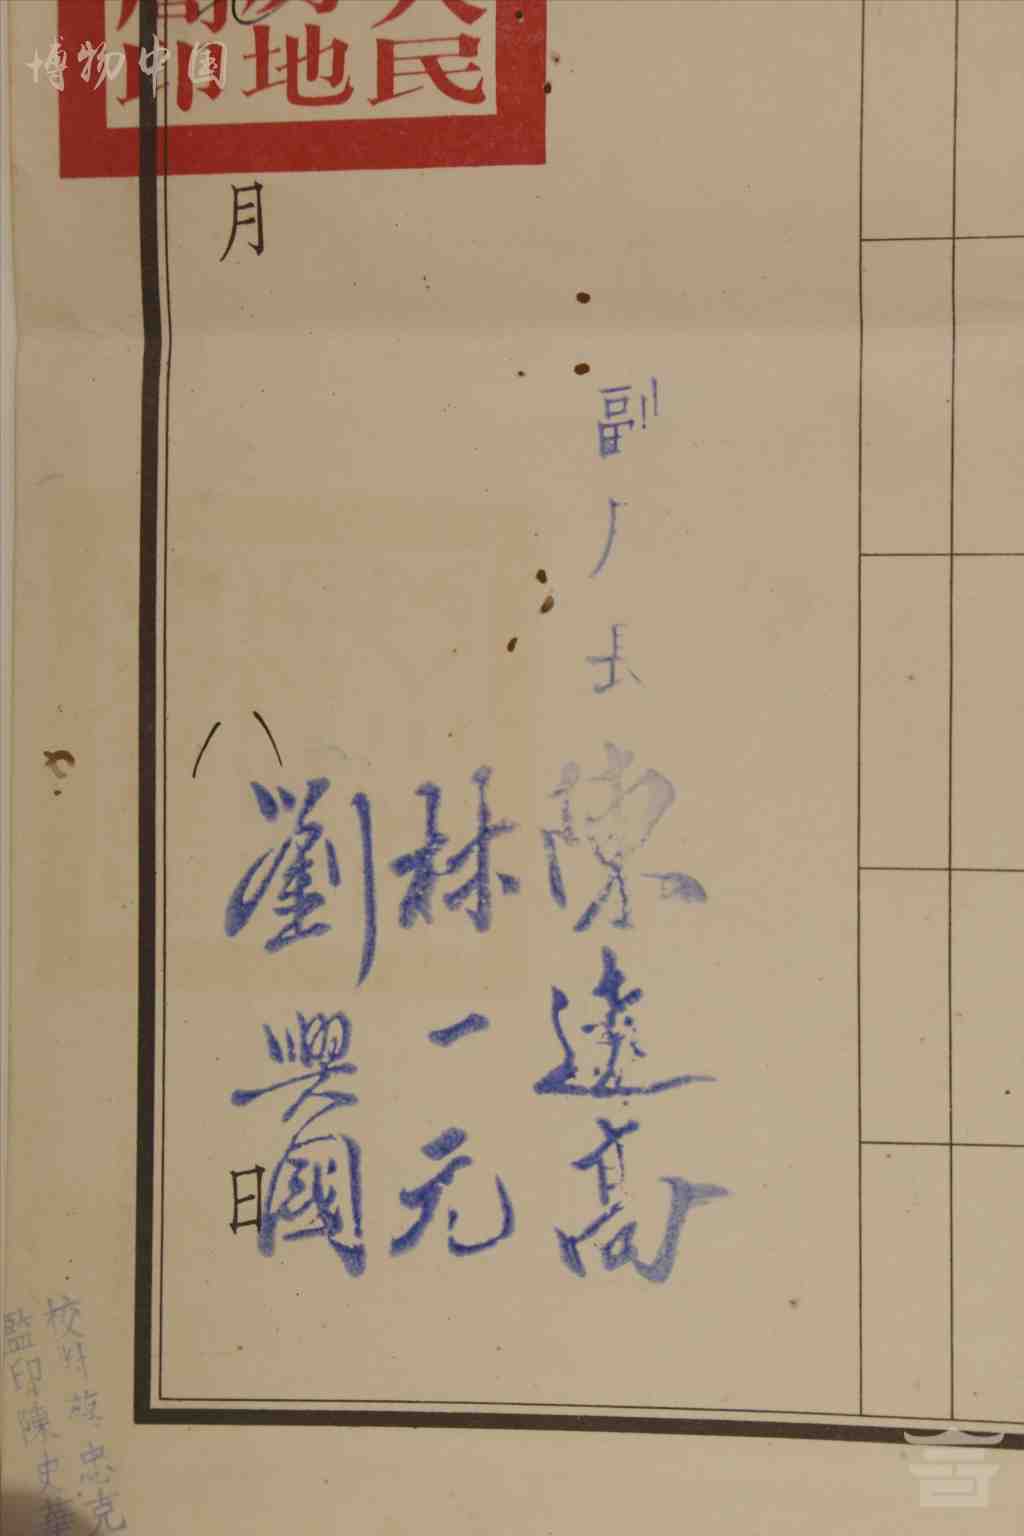 博物中国
民
地
印
副厂长陳達高
林一元
劉興國
月八日
校对 忠克
監印陳史華